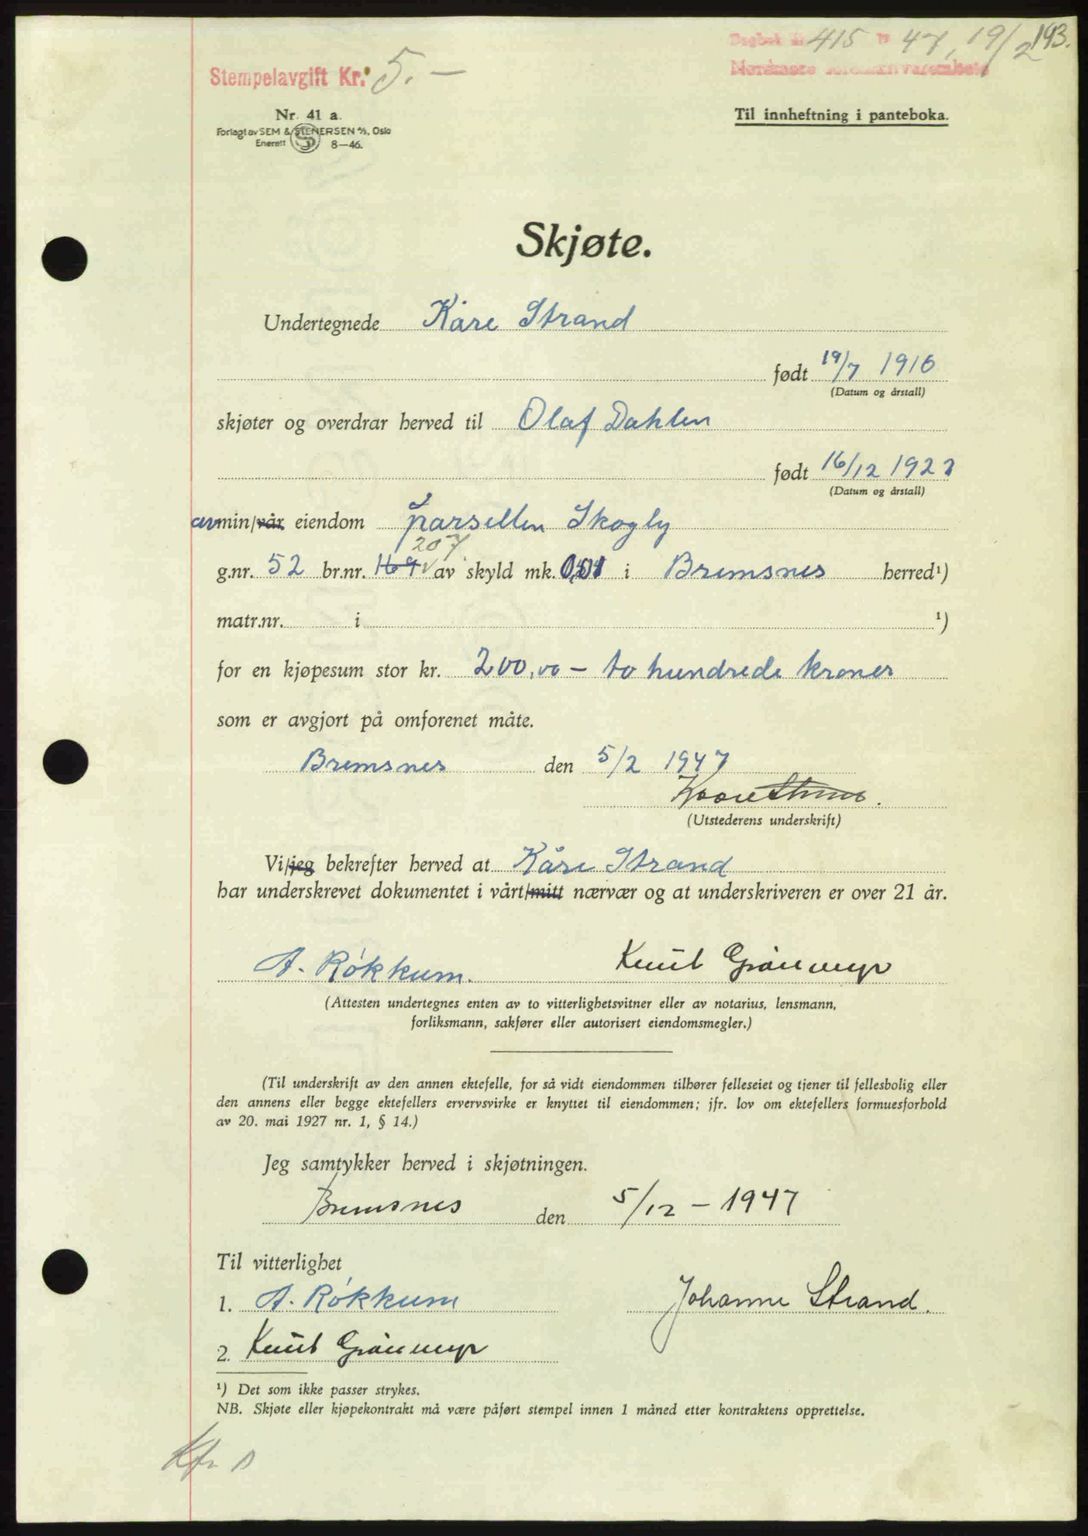 Dagbok nr 415 19 47, 19/2 193.
Stempelavgift Kr. 5.-
Nordmøre sorenskriverembete
Nr. 41 a.
Forlagt av SEM & STENERSEN A/S, Oslo
Enerett 8-46.
Til innheftning i panteboka.
Skjøte.
Undertegnede Kåre Strand
født 19/7 1916
(Datum og årstall)
skjøter og overdrar herved til Olaf Dahlen
født 16/12 1922
(Datum og årstall)
av min/vår eiendom parsellen Skogly
207
g.nr. 52 br.nr. 169 av skyld mk. 0,01 i Bremsnes herred¹)
matr.nr. i ¹)
for en kjøpesum stor kr. 200,00 - to hundrede kroner
som er avgjort på omforenet måte.
Bremsnes den 5/2 1947
Kaare Strand.
(Utstederens underskrift)
Vi/jeg bekrefter herved at Kåre Strand
har underskrevet dokumentet i vårt/mitt nærvær og at underskriveren er over 21 år.
A. Røkkum. Knut
(Attesten undertegnes enten av to vitterlighetsvitner eller av notarius, lensmann,
forliksmann, sakfører eller autorisert eiendomsmegler.)
(Til underskrift av den annen ektefelle, for så vidt eiendommen tilhører felleseiet og tjener til fellesbolig eller
den annens eller begge ektefellers ervervsvirke er knyttet til eiendommen; jfr. lov om ektefellers formuesforhold
av 20. mai 1927 nr. 1, § 14.)
Jeg samtykker herved i skjøtningen.
Bremsnes den 5/12 - 1947
Til vitterlighet
1. A. Røkkum Johanne Strand.
2. Knut
¹) Det som ikke passer strykes.
NB. Skjøte eller kjøpekontrakt må være påført stempel innen 1 måned etter kontraktens opprettelse.